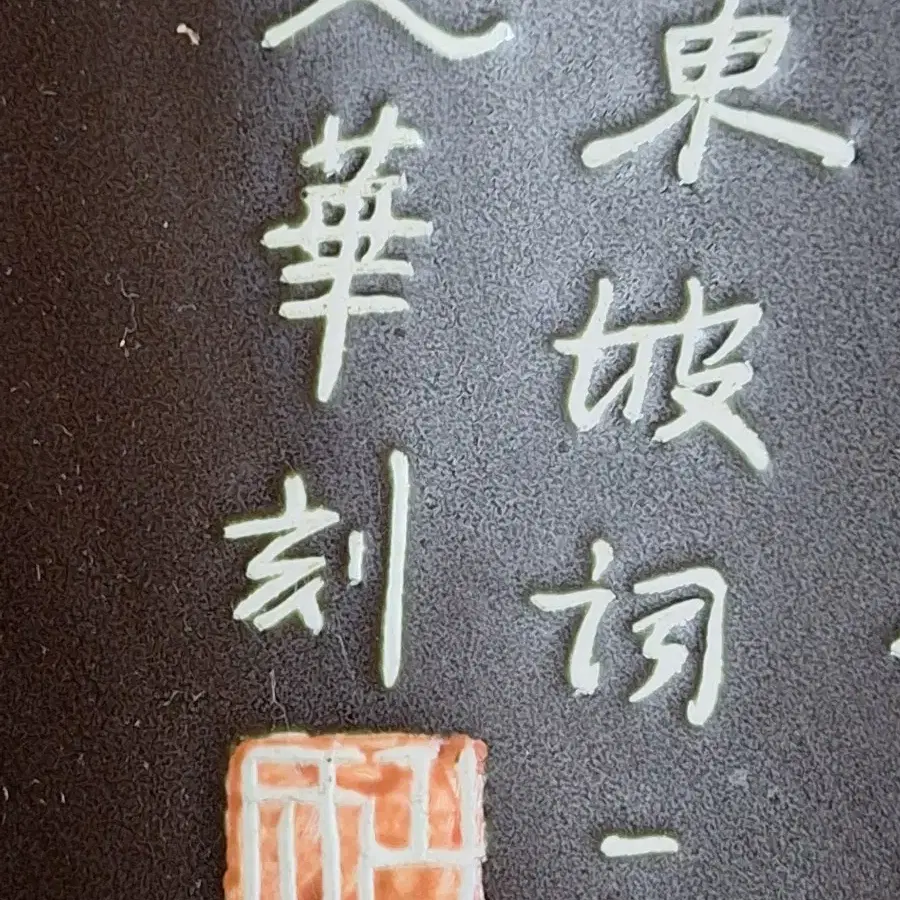 東坡词一
華刻